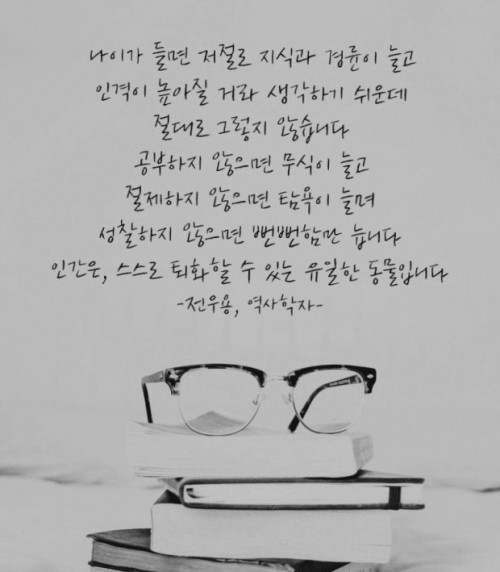 나이가 들면 저절로 지식과 경륜이 늘고
인격이 높아질 거라 생각하기 쉬운데
절대로 그렇지 않습니다
공부하지 않으면 무식이 늘고
절제하지 않으면 탐욕이 늘며
성찰하지 않으면 뻔뻔함만 늡니다
인간은, 스스로 퇴화할 수 있는 유일한 동물입니다
-전우용, 역사학자-